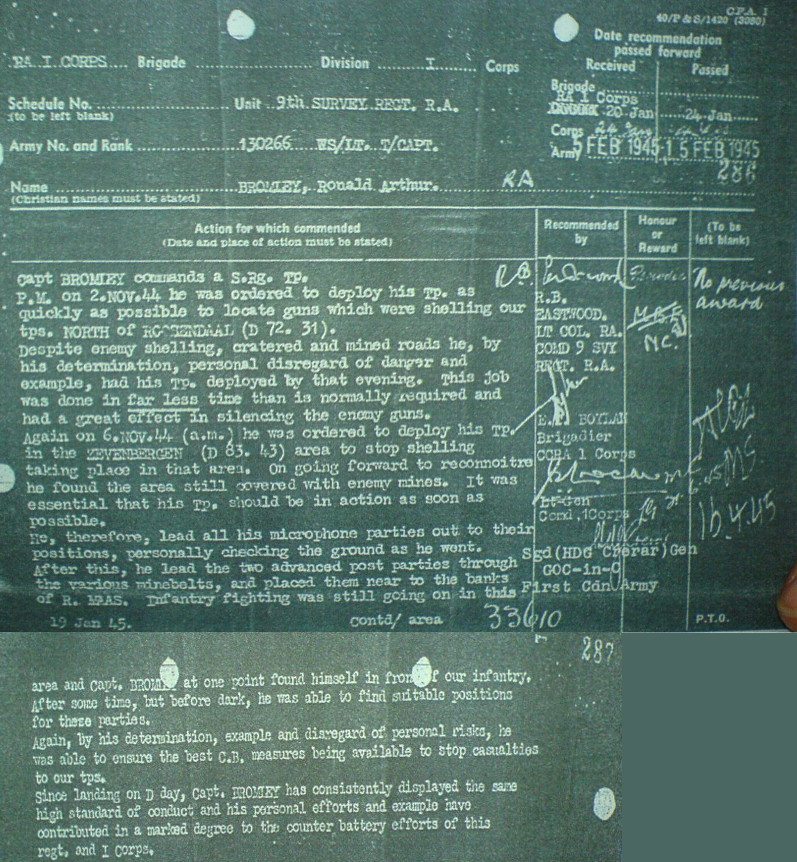 C.P.A. 1
40/P & S/1420 (3080)
Date recommendation
passed forward
Received Passed
RA I CORPS Brigade Division I Corps
Brigade
RA I Corps
20 Jan 24 Jan
Schedule No. Unit 9th SURVEY REGT. R.A.
(to be left blank)
Corps
Army No. and Rank 130266 WS/LT. T/CAPT.
Army 5 FEB 1945 15 FEB 1945
286
Name BROMLEY, Ronald Arthur. RA
(Christian names must be stated)
Action for which commended
(Date and place of action must be stated)
Recommended
by
Honour
or
Reward
(To be
left blank)
Capt BROMLEY commands a S.Rg. TP.
P.M. on 2.NOV.44 he was ordered to deploy his Tp. as
quickly as possible to locate guns which were shelling our
tps. NORTH of ROSSENDAAL (D 72. 31).
Despite enemy shelling, cratered and mined roads he, by
his determination, personal disregard of danger and
example, had his Tp. deployed by that evening. This job
was done in far less time than is normally required and
had a great effect in silencing the enemy guns.
Again on 6.NOV.44 (a.m.) he was ordered to deploy his TP.
in the ZEVENBERGEN (D 83. 43) area to stop shelling
taking place in that area. On going forward to reconnoitre
he found the area still covered with enemy mines. It was
essential that his Tp. should be in action as soon as
possible.
He, therefore, lead all his microphone parties out to their
positions, personally checking the ground as he went.
After this, he lead the two advanced post parties through
the various minebelts, and placed them near to the banks
of R. MAAS. Infantry fighting was still going on in this
19 Jan 45. contd/ area 33610
R.B.
R.B.
EASTWOOD.
LT COL. RA.
COMD 9 SVY
REGT. R.A.
BOYLAN
Brigadier
CCRA 1 Corps
Lt-Gen
Comd, 1Corps
Sgd(HDG Crerar)Gen
GOC-in-C
First Cdn Army
Periodic
M.B.E
MC.
No previous
award
16.4.45
P.T.O.
287
area and Capt. BROMLEY at one point found himself in front of our infantry.
After some time, but before dark, he was able to find suitable positions
for these parties.
Again, by his determination, example and disregard of personal risks, he
was able to ensure the best C.B. measures being available to stop casualties
to our tps.
Since landing on D day, Capt. BROMLEY has consistently displayed the same
high standard of conduct and his personal efforts and example have
contributed in a marked degree to the counter battery efforts of this
regt. and I Corps.